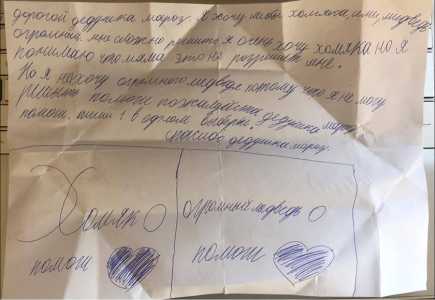 дорогой дедушка мороз. я хочу либо хомяка, или медведь
огромный. мне сложно решить я очень хочу хомяка но я
понимаю что мама это не разрешит мне.
Но я хочу огромного медведя потому что я не могу
решить помоги пожалуйста дедушка мороз
помош. пиши 1 в одном выбери.
спасибо дедушка мороз.
Хомяк
огромный медведь
помош
помош